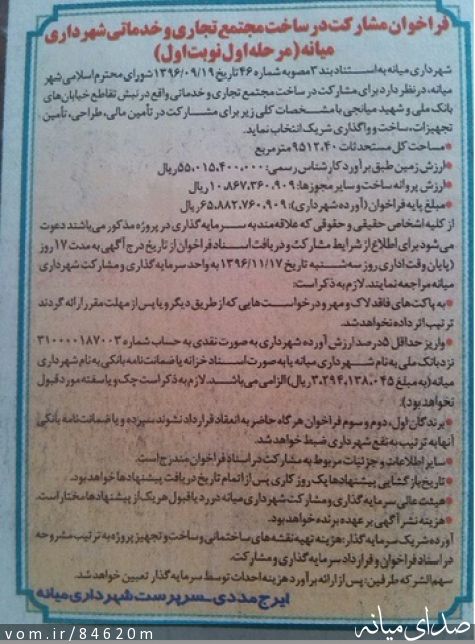 فراخوان مشارکت در ساخت مجتمع تجاری و خدماتی شهرداری
میانه (مرحله اول نوبت اول)
شهرداری میانه به استناد بند ۳ مصوبه شماره ۴۶ تاریخ ۱۳۹۶/۰۹/۱۹ شورای محترم اسلامی شهر
میانه، در نظر دارد برای مشارکت در ساخت مجتمع تجاری و خدماتی واقع در نبش تقاطع خیابان‌های
بانک ملی و شهید میانجی با مشخصات کلی زیر برای مشارکت در تأمین مالی، طراحی، تأمین
تجهیزات، ساخت و واگذاری شریک انتخاب نماید.
●مساحت کل مستحدثات ۹۵۱۲،۴۰ مترمربع
●ارزش زمین طبق برآورد کارشناس رسمی: ۵۵،۰۱۵،۴۰۰،۰۰۰ ریال
●ارزش پروانه ساخت و سایر مجوزها: ۱۰،۸۶۷،۳۶۰،۹۰۹ ریال
●مبلغ پایه فراخوان (آورده شهرداری): ۶۵،۸۸۲،۷۶۰،۹۰۹ ریال
از کلیه اشخاص حقیقی و حقوقی که علاقه‌مند به سرمایه گذاری در پروژه مذکور می‌باشند دعوت
می‌شود برای اطلاع از شرایط مشارکت و دریافت اسناد فراخوان از تاریخ درج آگهی به مدت ۱۷ روز
(پایان وقت اداری روز سه‌شنبه تاریخ ۱۳۹۶/۱۱/۱۷ به واحد سرمایه گذاری و مشارکت شهرداری
میانه مراجعه نمایند. لازم به ذکر است:
●به پاکت‌های فاقد لاک و مهر و درخواست‌هایی که از طریق دیگر و یا پس از مهلت مقرر ارائه گردند
ترتیب اثر داده نخواهد شد.
●واریز حداقل ۵درصد ارزش آورده شهرداری به صورت نقدی به حساب شماره ۳۱۰۰۰۰۱۸۷۰۰۳
نزد بانک ملی به نام شهرداری میانه یا به صورت اسناد خزانه یا ضمانت‌نامه بانکی به نام شهرداری
میانه (به مبلغ ۳،۲۹۴،۱۳۸،۰۴۵ ریال) الزامی می‌باشد. لازم به ذکر است چک و یا سفته مورد قبول
نخواهد بود):
●برندگان اول، دوم و سوم فراخوان هرگاه حاضر به انعقاد قرارداد نشوند سپرده و یا ضمانت‌نامه بانکی
آنها به ترتیب به نفع شهرداری ضبط خواهد شد.
●سایر اطلاعات و جزئیات مربوط به مشارکت در اسناد فراخوان مندرج است.
●تاریخ بازگشایی پیشنهادها یک روز کاری پس از اتمام تاریخ دریافت پیشنهادها خواهد بود.
●هیئت عالی سرمایه گذاری و مشارکت شهرداری میانه در رد یا قبول هر یک از پیشنهادها مختار است.
●هزینه نشر آگهی بر عهده برنده خواهد بود.
آورده شریک سرمایه گذار: هزینه تهیه نقشه‌های ساختمانی و ساخت و تجهیز پروژه به ترتیب مشروحه
در اسناد فراخوان و قرارداد سرمایه گذاری و مشارکت.
سهم‌الشرکه طرفین: پس از ارائه برآورد هزینه احداث توسط سرمایه گذار تعیین خواهد شد.
ایرج مددی-سرپرست شهرداری میانه
vom.ir/84620m
صدای میانه